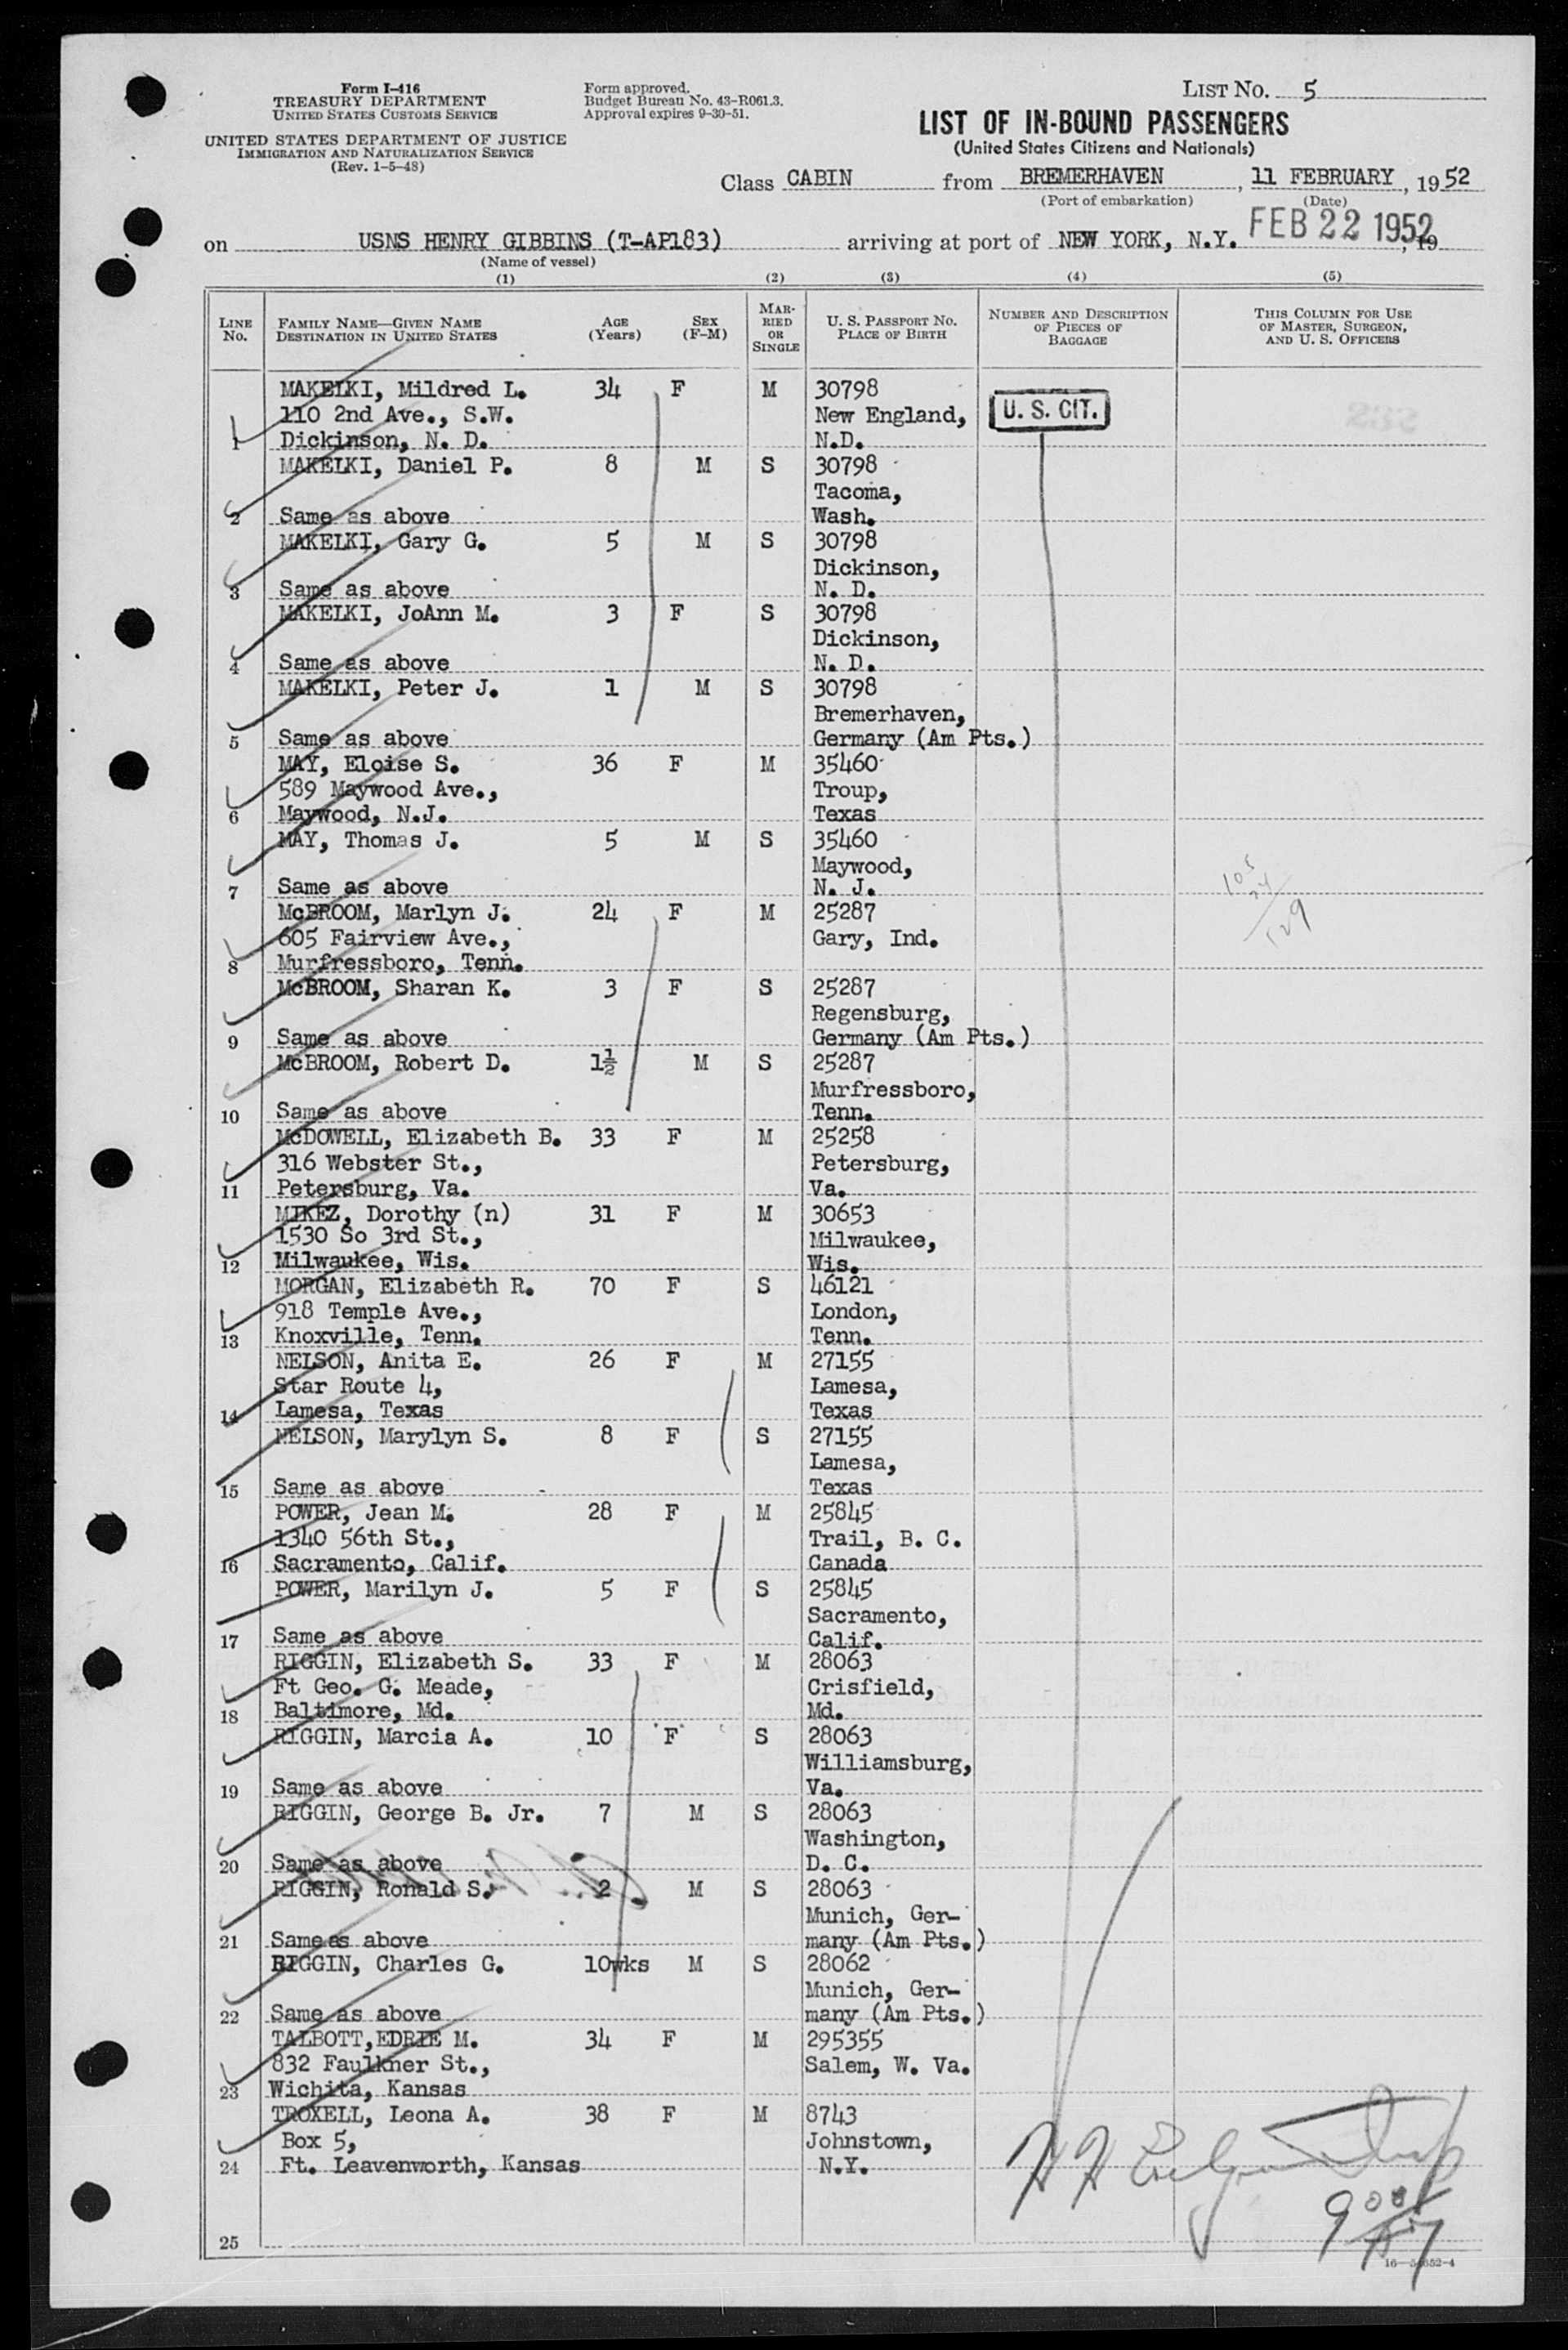 Form I-416
TREASURY DEPARTMENT
UNITED STATES CUSTOMS SERVICE
UNITED STATES DEPARTMENT OF JUSTICE
IMMIGRATION AND NATURALIZATION SERVICE
(Rev. 1-5-48)
Form approved.
Budget Bureau No. 43-R061.3.
Approval expires 9-30-51.
LIST NO. 5
LIST OF IN-BOUND PASSENGERS
(United States Citizens and Nationals)
Class CABIN from BREMERHAVEN, 11 FEBRUARY, 1952
(Port of embarkation) (Date)
on USNS HENRY GIBBINS (T-AP183) arriving at port of NEW YORK, N.Y. FEB 22 1952, 19
(Name of vessel)
(1) (2) (3) (4) (5)
LINE No. FAMILY NAME—GIVEN NAME DESTINATION IN UNITED STATES AGE (Years) SEX (F-M) MARRIED OR SINGLE U. S. PASSPORT NO. PLACE OF BIRTH NUMBER AND DESCRIPTION OF PIECES OF BAGGAGE THIS COLUMN FOR USE OF MASTER, SURGEON, AND U. S. OFFICERS
MAKELKI, Mildred L. 34 F M 30798
110 2nd Ave., S.W. New England, U. S. CIT.
1 Dickinson, N. D. N.D.
MAKELKI, Daniel P. 8 M S 30798
Tacoma,
2 Same as above Wash.
MAKELKI, Gary G. 5 M S 30798
Dickinson,
3 Same as above N. D.
MAKELKI, JoAnn M. 3 F S 30798
Dickinson,
4 Same as above N. D.
MAKELKI, Peter J. 1 M S 30798
Bremerhaven,
5 Same as above Germany (Am Pts.)
MAY, Eloise S. 36 F M 35460
589 Maywood Ave., Troup,
6 Maywood, N.J. Texas
MAY, Thomas J. 5 M S 35460
Maywood,
7 Same as above N. J.
105
24
129
McBROOM, Marlyn J. 24 F M 25287
605 Fairview Ave., Gary, Ind.
8 Murfressboro, Tenn.
McBROOM, Sharan K. 3 F S 25287
Regensburg,
9 Same as above Germany (Am Pts.)
McBROOM, Robert D. 1½ M S 25287
Murfressboro,
10 Same as above Tenn.
McDOWELL, Elizabeth B. 33 F M 25258
316 Webster St., Petersburg,
11 Petersburg, Va. Va.
MIKEZ, Dorothy (n) 31 F M 30653
1530 So 3rd St., Milwaukee,
12 Milwaukee, Wis. Wis.
MORGAN, Elizabeth R. 70 F S 46121
918 Temple Ave., London,
13 Knoxville, Tenn. Tenn.
NELSON, Anita E. 26 F M 27155
Star Route 4, Lamesa,
14 Lamesa, Texas Texas
NELSON, Marylyn S. 8 F S 27155
Lamesa,
15 Same as above Texas
POWER, Jean M. 28 F M 25845
1340 56th St., Trail, B. C.
16 Sacramento, Calif. Canada
POWER, Marilyn J. 5 F S 25845
Sacramento,
17 Same as above Calif.
RIGGIN, Elizabeth S. 33 F M 28063
Ft Geo. G. Meade, Crisfield,
18 Baltimore, Md. Md.
RIGGIN, Marcia A. 10 F S 28063
Williamsburg,
19 Same as above Va.
RIGGIN, George B. Jr. 7 M S 28063
Washington,
20 Same as above D. C.
RIGGIN, Ronald S. 2 M S 28063
Munich, Ger-
21 Same as above many (Am Pts.)
RIGGIN, Charles G. 10wks M S 28062
Munich, Ger-
22 Same as above many (Am Pts.)
TALBOTT,EDRIE M. 34 F M 295355
832 Faulkner St., Salem, W. Va.
23 Wichita, Kansas
TROXELL, Leona A. 38 F M 8743
Box 5, Johnstown,
24 Ft. Leavenworth, Kansas N.Y.
25